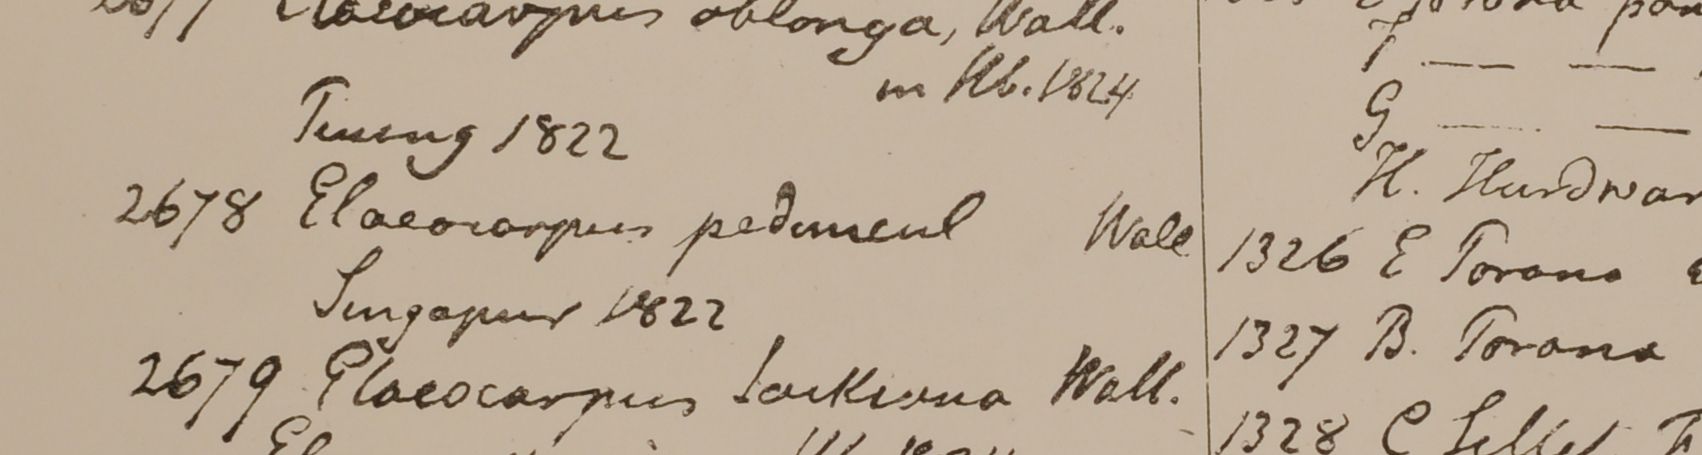 2677 Elaeocarpus oblonga, Wall.
in Hb. 1824
Penang 1822
2678 Elaeocarpus peduncul Wall
Singapur 1822
2679 Elaeocarpus Jackiana Wall.
G — —
H. Hurdwar
1326 E Porana
1327 B. Porana
1328 C Sillet